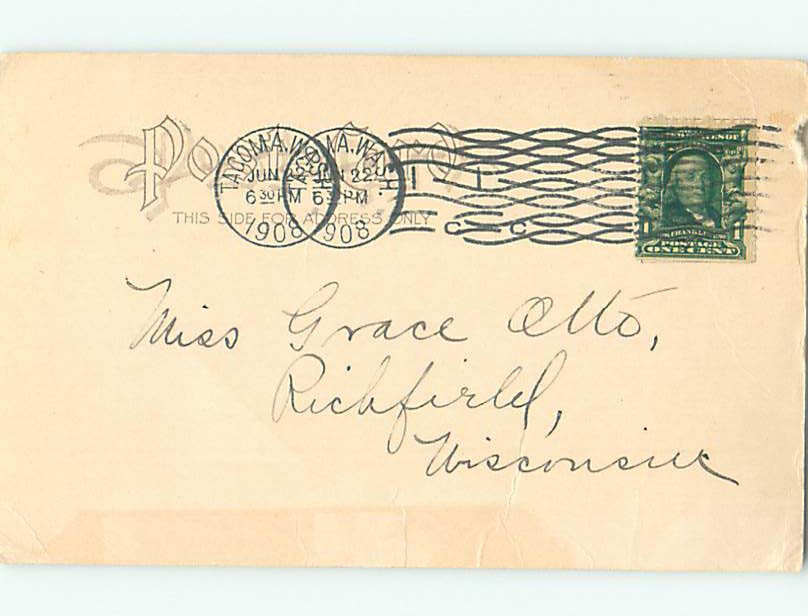 Post Card
TACOMA, WASH. TACOMA, WASH.
JUN 22 JUN 22
6 30 PM 6 30 PM
1908 1908
THIS SIDE FOR ADDRESS ONLY
1 FRANKLIN 1
POSTAGE
ONE CENT
Miss Grace Otto,
Richfield,
Wisconsin